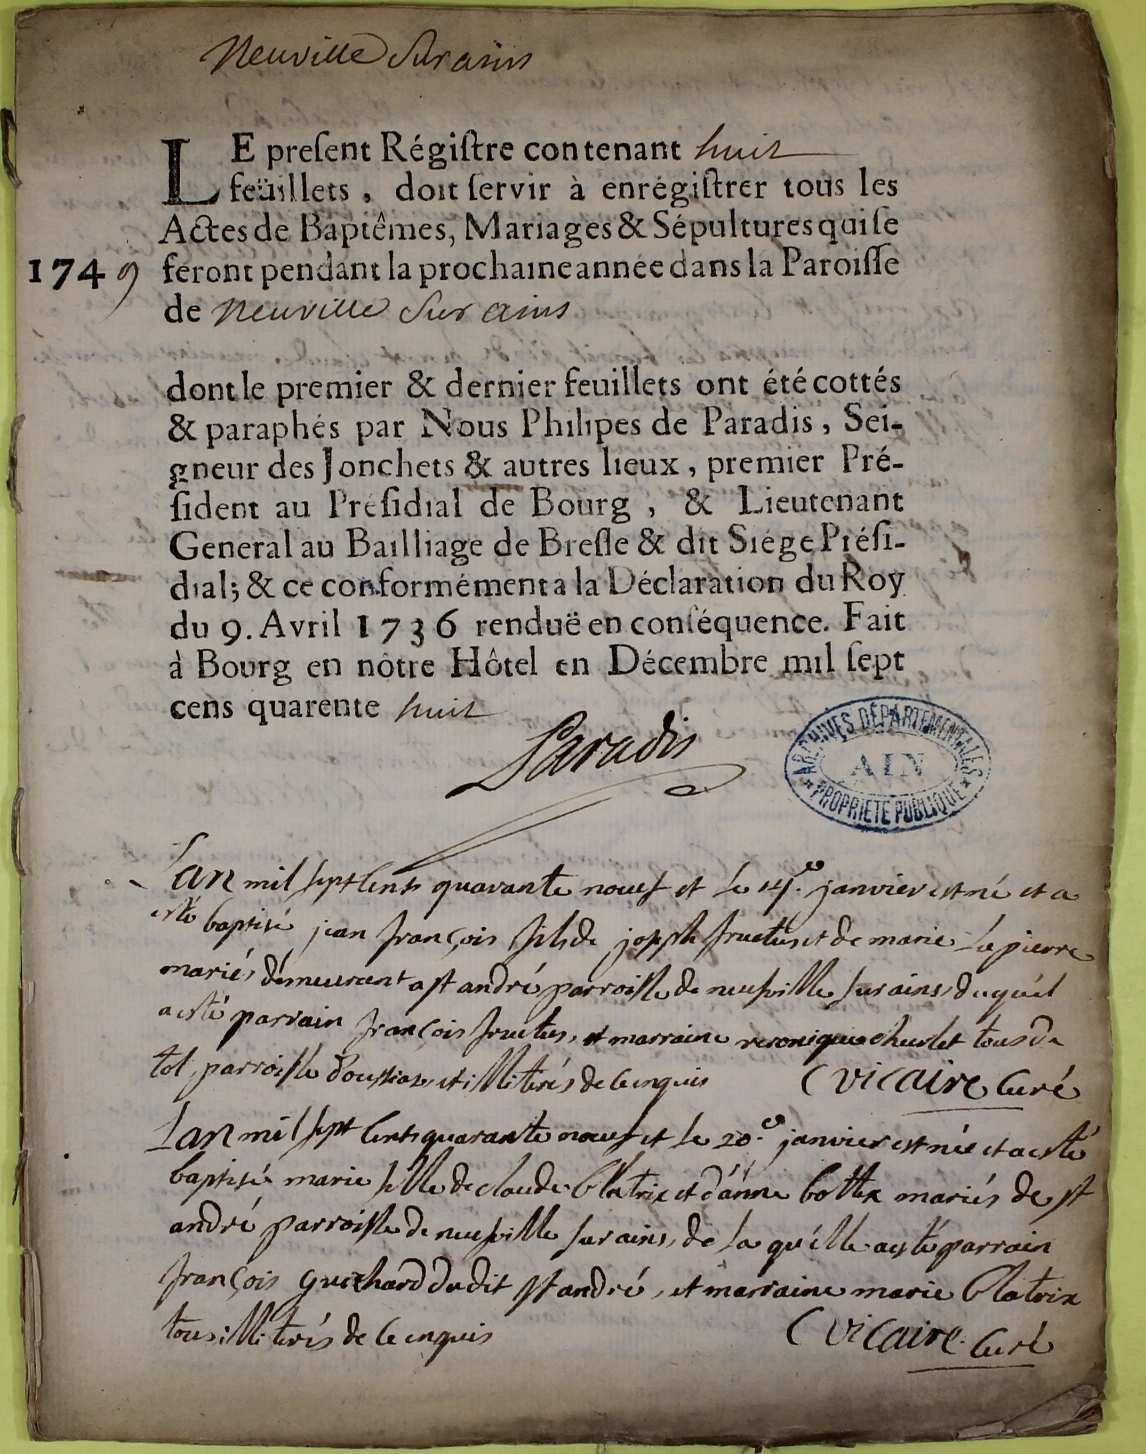 Neuville Sur ains
LE preſent Régiſtre contenant huit
feüillets, doit ſervir à enrégiſtrer tous les
Actes de Baptêmes, Mariages & Sépultures qui ſe
1749 feront pendant la prochaine année dans la Paroiſſe
de Neuville Sur ains
dont le premier & dernier feuillets ont été cottés
& paraphés par Nous Philipes de Paradis, Sei-
gneur des Jonchets & autres lieux, premier Pré-
ſident au Préſidial de Bourg, & Lieutenant
General au Bailliage de Breſſe & dit Siége Préſi-
dial; & ce conformément a la Déclaration du Roy
du 9. Avril 1736 renduë en conſéquence. Fait
à Bourg en nôtre Hôtel en Décembre mil ſept
cens quarente huit
Paradis
ARCHIVES DÉPARTEMENTALES
AIN
PROPRIETE PUBLIQUE
Lan mil sept cents quarante neuf et le janvier est né et a
esté baptisé jean françois fils de joseph fructus et de marie Lapierre
mariés démeurant a st andré parroisse de neufville sur ains, duquél
a esté parrain françois fructus, et marraine veronique tous de
parroisse et illiterés de ce enquis C vicaire Curé
Lan mil sept cents quarante neuf et le 20.e janvier est née et a esté
baptisée marie fille de claude Blatrix et d'anne bottex mariés de st
andré parroisse de neufville sur ains, de la qu'elle a esté parrain
françois guichard dudit st andré, et marraine marie Blatrix
tous illiterés de ce enquis C vicaire. Curé